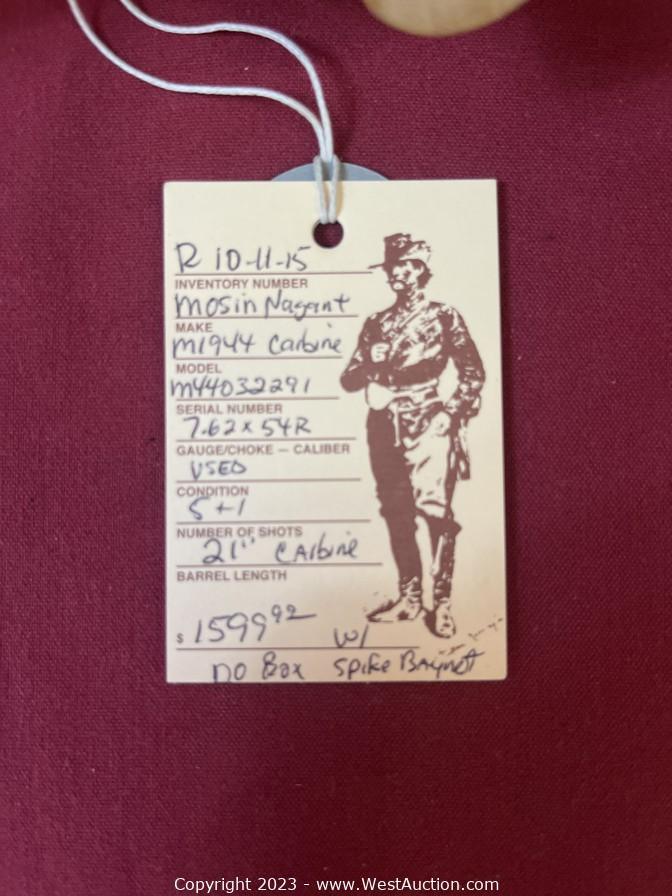 R 10-11-15
INVENTORY NUMBER
Mosin Nagant
MAKE
M1944 Carbine
MODEL
M44032291
SERIAL NUMBER
7.62 x 54R
GAUGE/CHOKE — CALIBER
USED
CONDITION
5+1
NUMBER OF SHOTS
21" Carbine
BARREL LENGTH
$ 1599 92 W/
NO Box Spike Baynot
Copyright 2023 - www.WestAuction.com